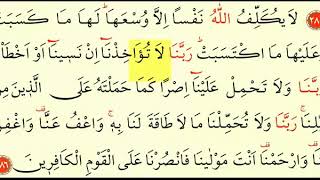 لَا يُكَلِّفُ اللّٰهُ نَفْسًا اِلَّا وُسْعَهَا لَهَا مَا كَسَبَتْ
عَلَيْهَا مَا اكْتَسَبَتْ رَبَّنَا لَا تُؤَاخِذْنَا اِنْ نَسِينَا اَوْ اَخْطَأْ
بَّنَا وَلَا تَحْمِلْ عَلَيْنَا اِصْرًا كَمَا حَمَلْتَهُ عَلَى الَّذِينَ مِنْ
لِنَا رَبَّنَا وَلَا تُحَمِّلْنَا مَا لَا طَاقَةَ لَنَا بِهِ وَاعْفُ عَنَّا وَاغْفِرْ
نَا وَارْحَمْنَا اَنْتَ مَوْلٰينَا فَانْصُرْنَا عَلَى الْقَوْمِ الْكَافِرِينَ